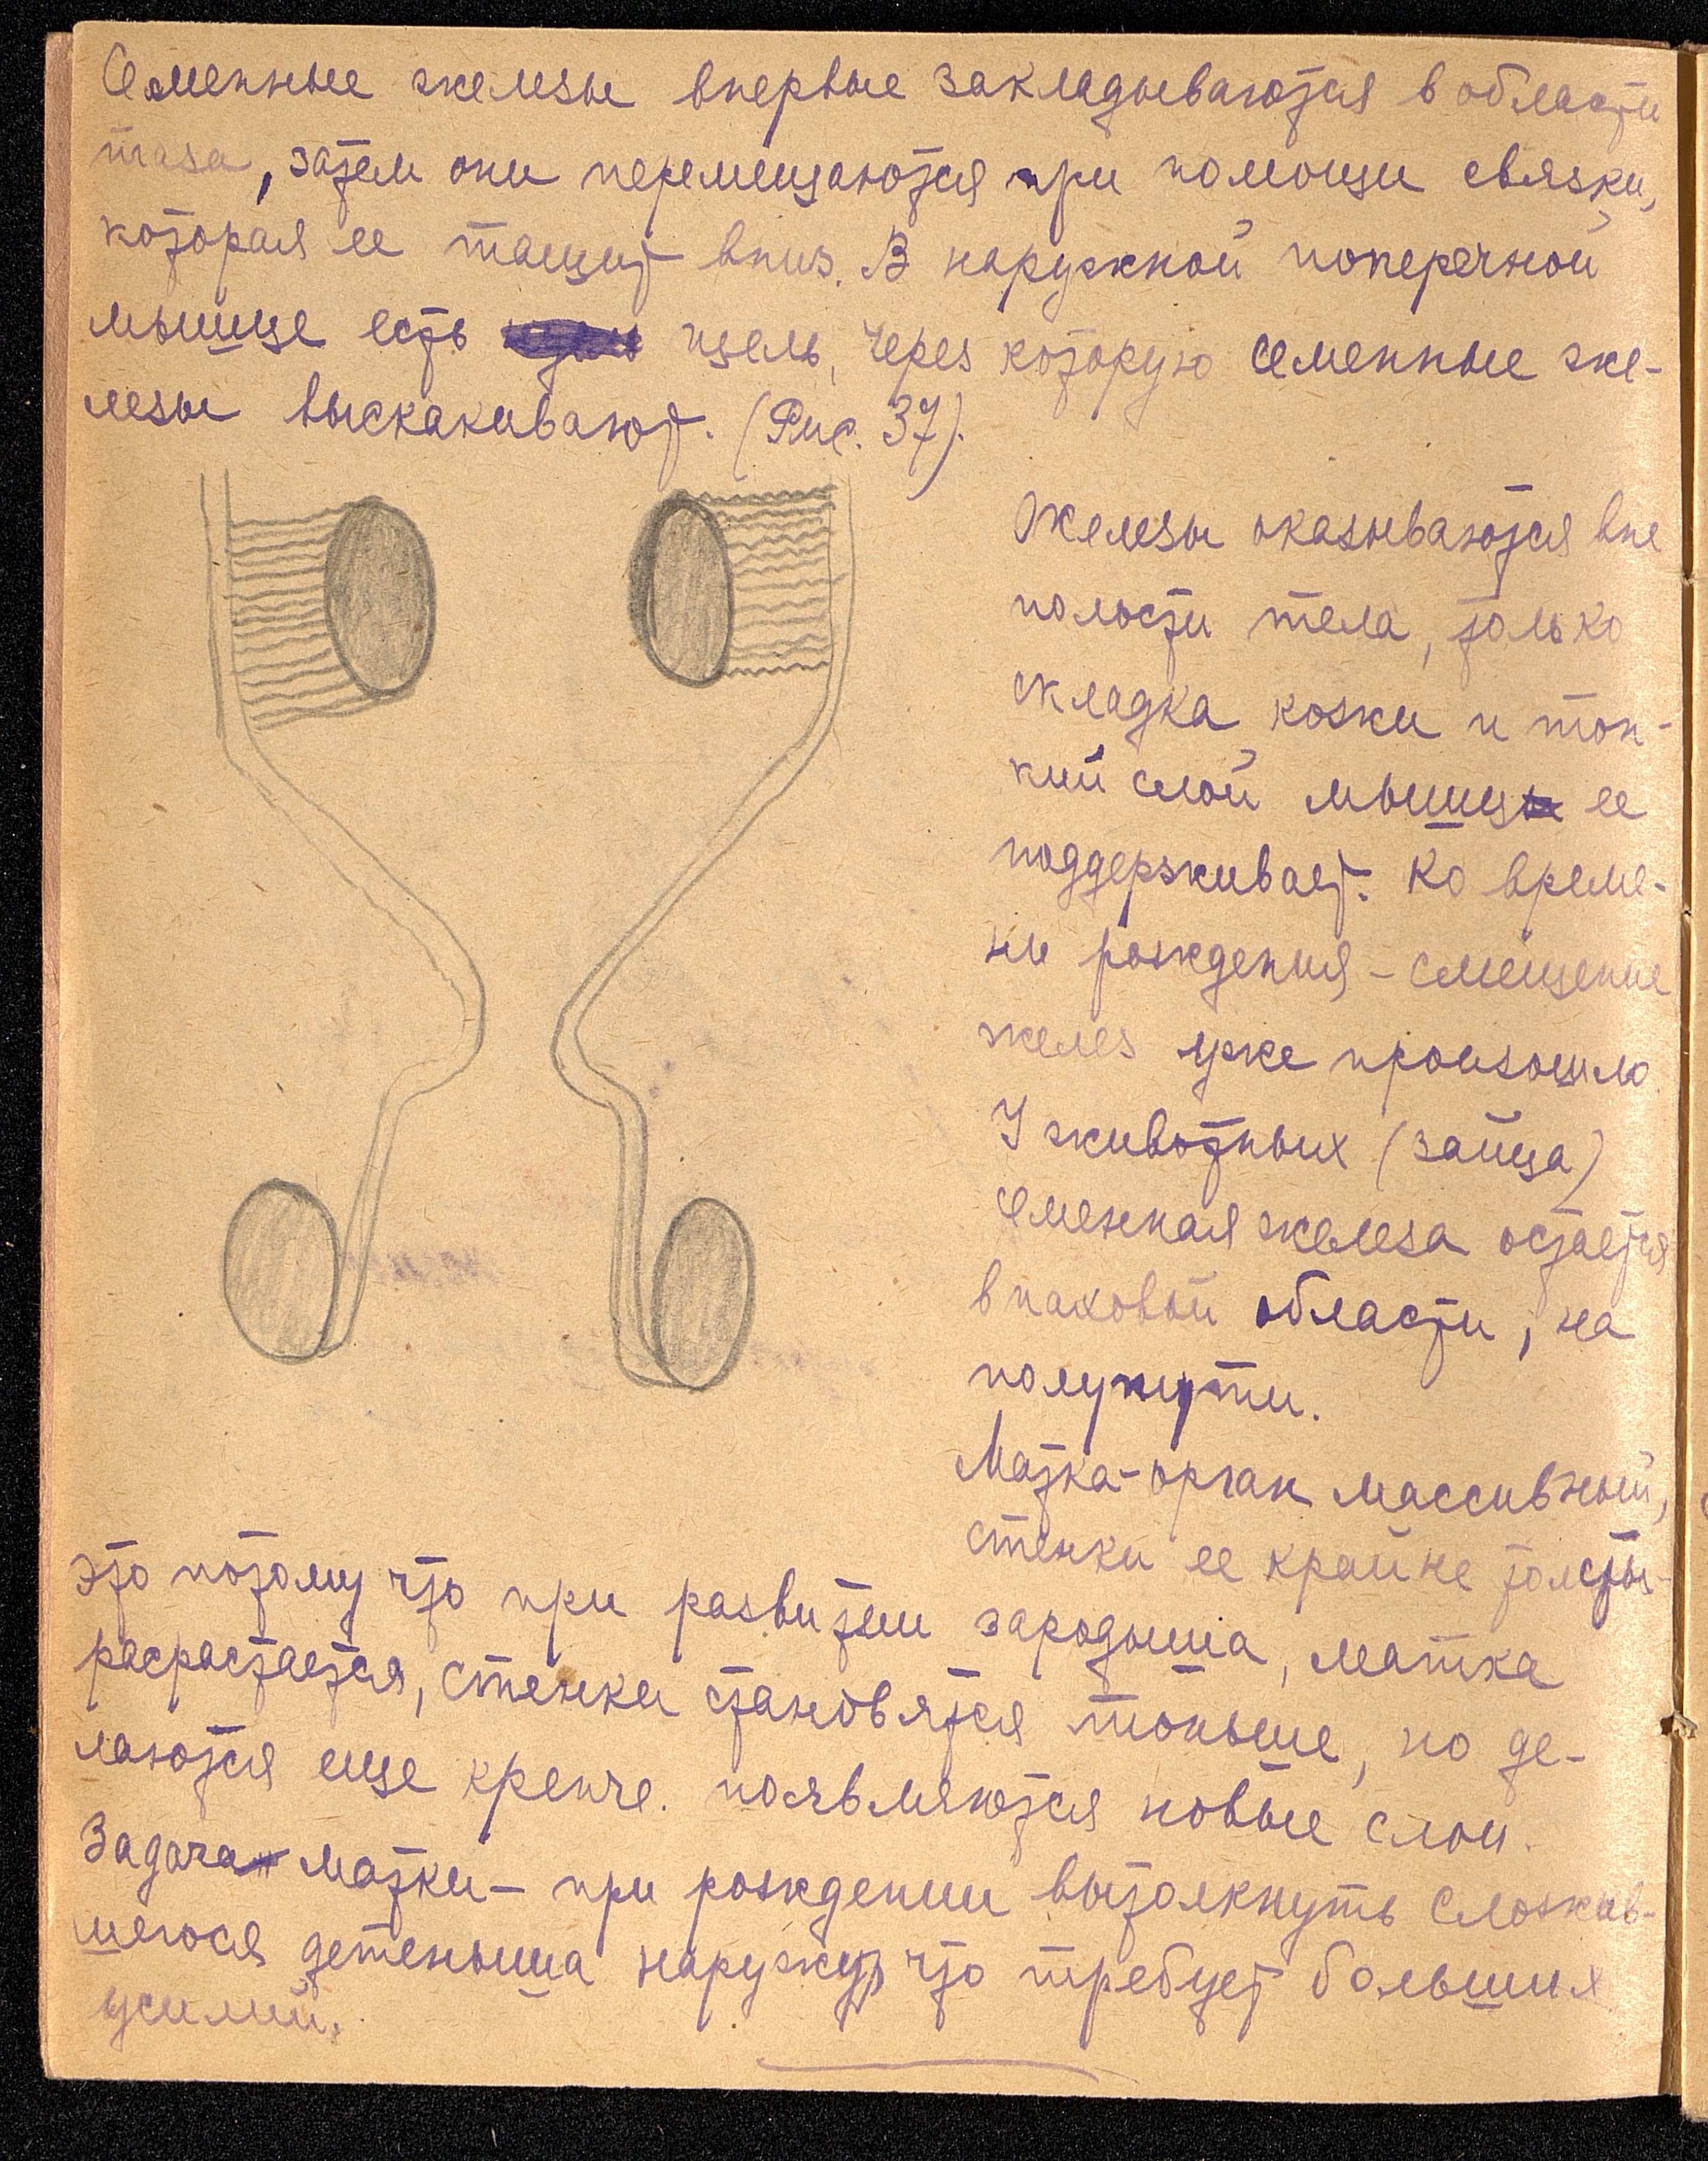 Семенные железы впервые закладываются в области
таза, затем они перемещаются при помощи связки,
которая ее тащит вниз. В наружной поперечной
мышце есть щель, через которую семенные же-
лезы выскакивают. (Рис. 37).
Железы оказываются вне
полости тела, только
складка кожи и тон-
кий слой мышц ее
поддерживает. Ко време-
ни рождения - смещение
желез уже произошло.
У животных (зайца)
семенная железа остается
в паховой области, на
полупути.
Матка - орган массивный,
стенки ее крайне толсты -
это потому что при развитии зародыша, матка
разрастается, стенки становятся тоньше, но де-
лаются еще крепче. появляются новые слои.
Задача матки - при рождении вытолкнуть сложив-
шегося детеныша наружу, что требует больших
усилий.